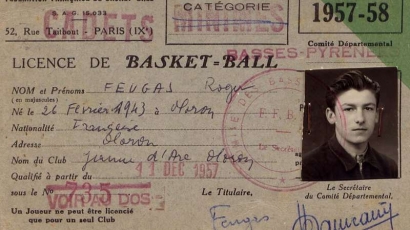 CADETS
CATÉGORIE
MINIMES
1957-58
52, Rue Taitbout - PARIS (IXe)
Comité Départemental
BASSES-PYRÉNÉES
LICENCE DE BASKET=BALL
NOM et Prénoms FEUGAS Roger
(en majuscules)
Né le 26 février 1943 à Oloron
Nationalité Française
Adresse Oloron
Nom du Club Jeanne d'Arc Oloron
Qualifié à partir du 11 DEC 1957
sous le No 735
VOIR AU DOS
Un Joueur ne peut être licencié
que pour un seul Club
Le Titulaire,
Feugas
Le Secrétaire
du Comité Départemental,